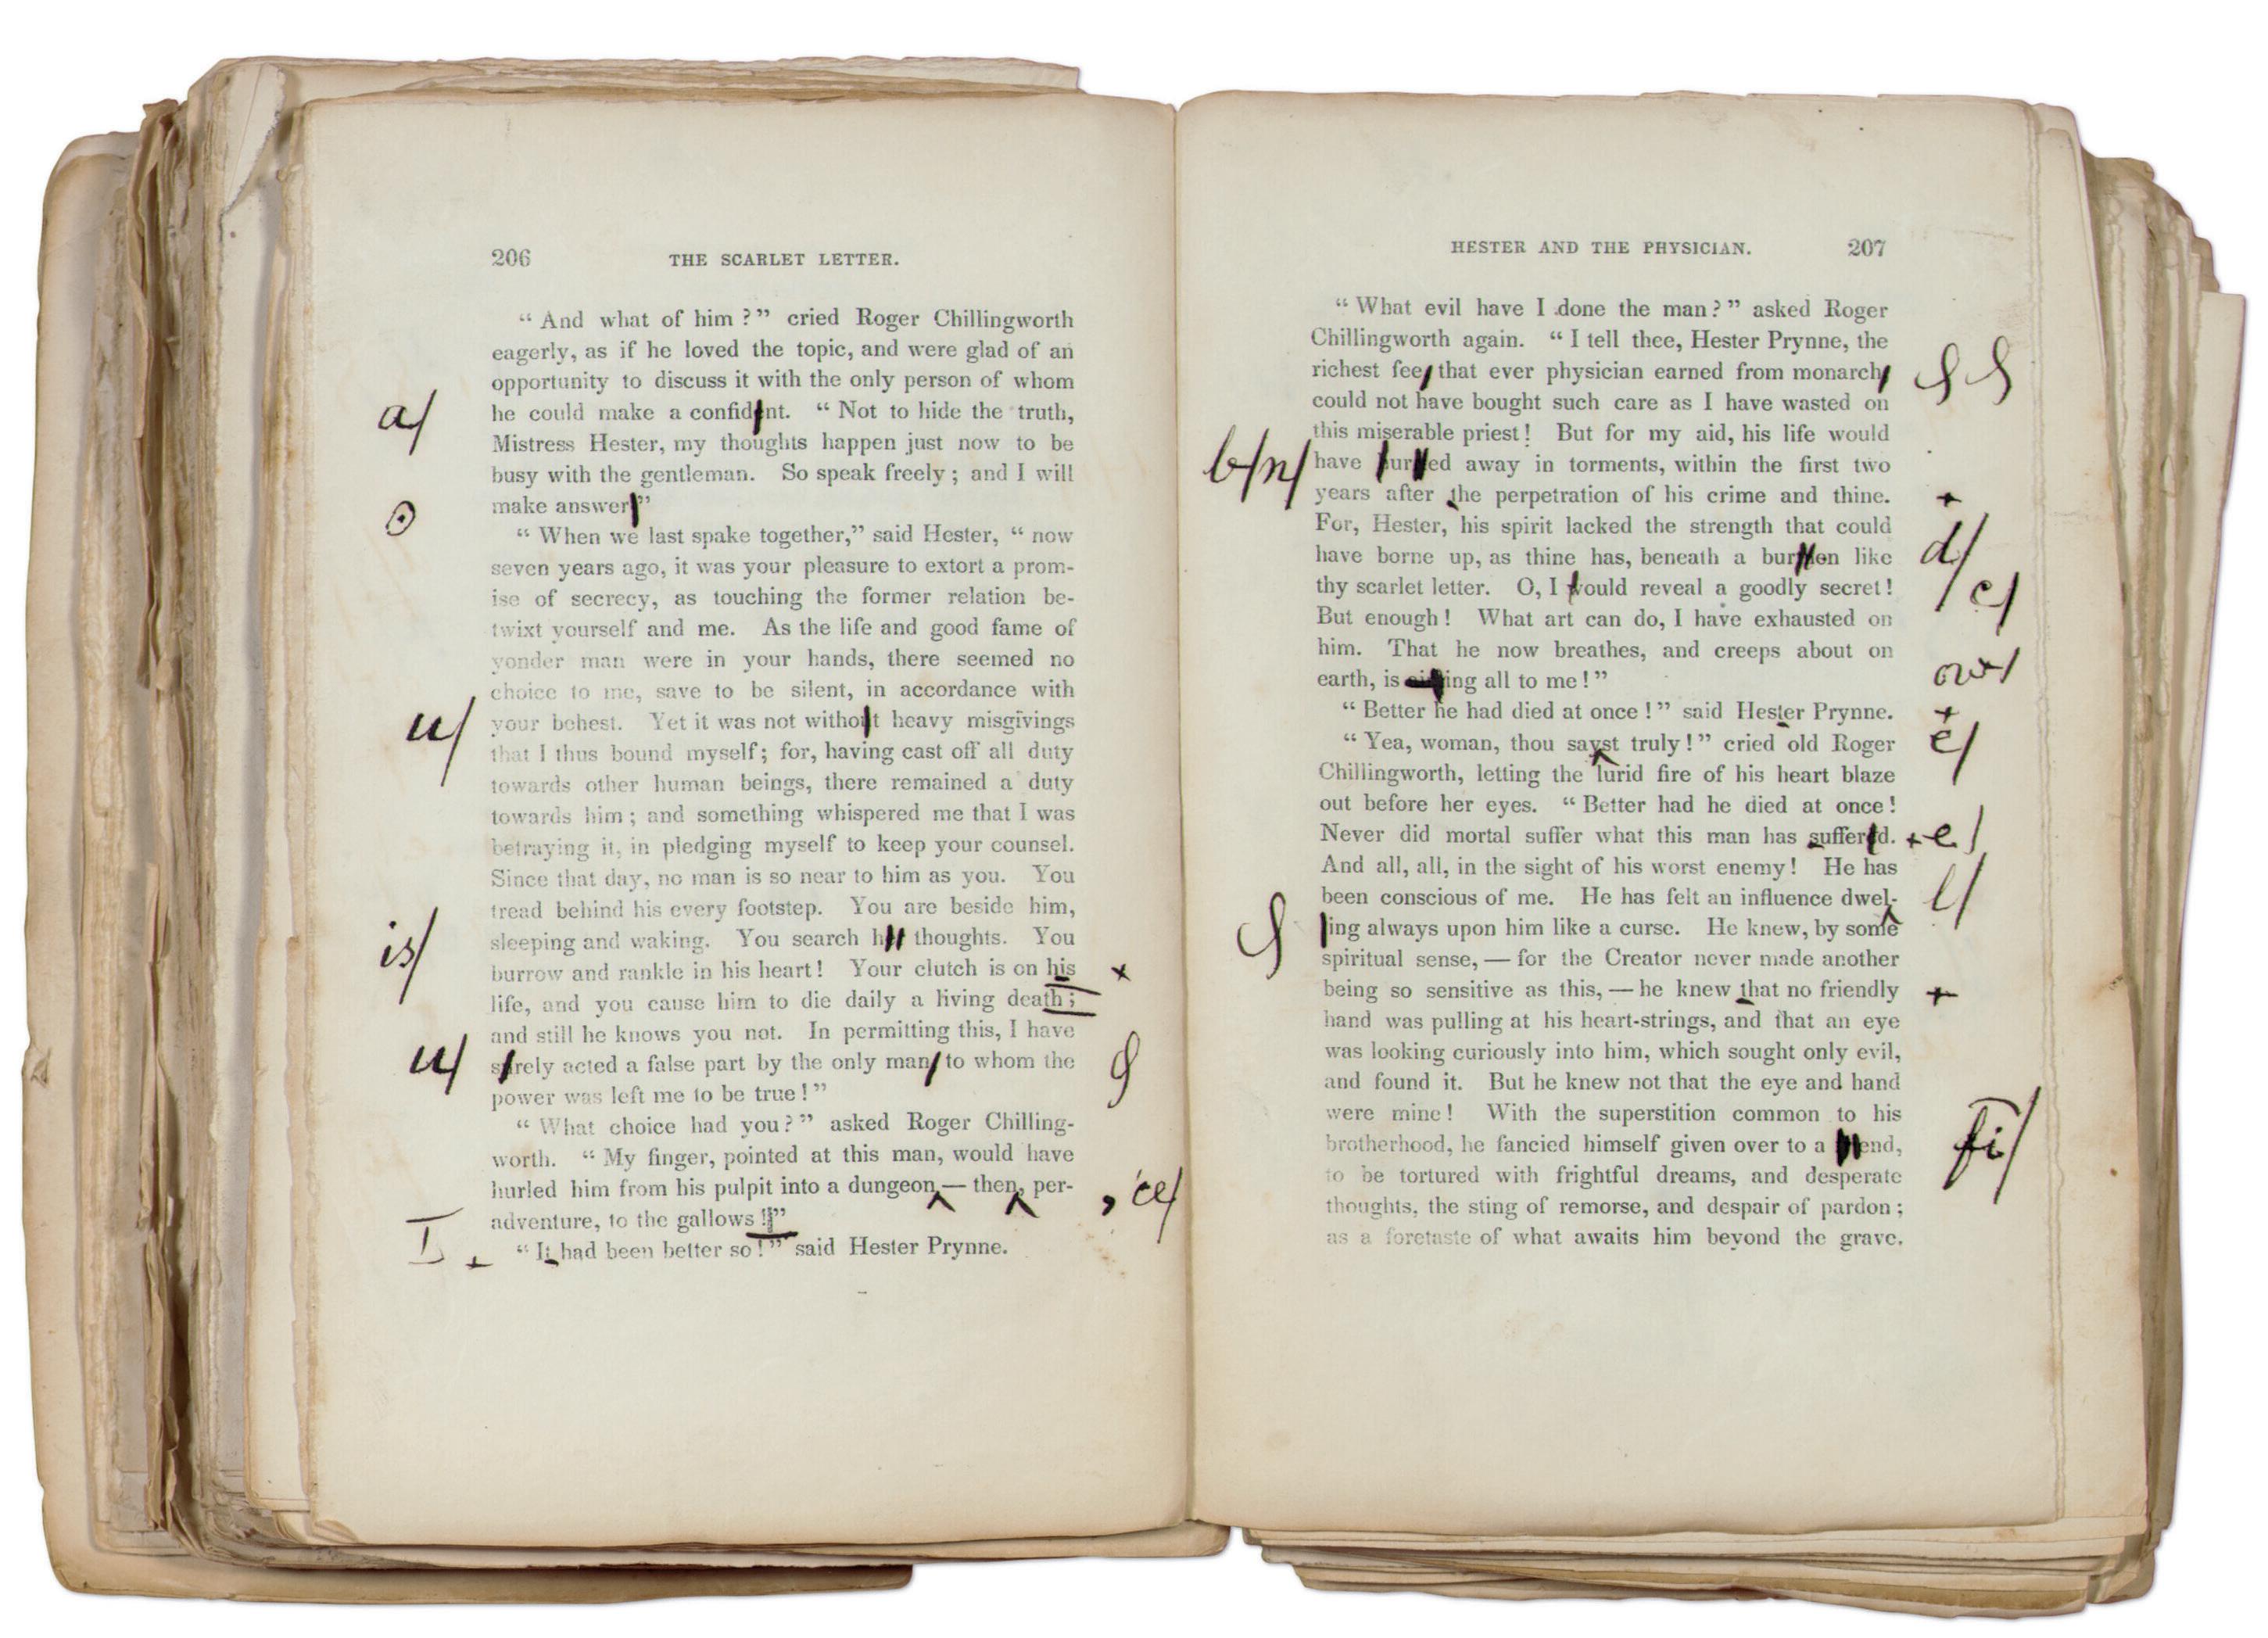 206 THE SCARLET LETTER.
“ And what of him ? ” cried Roger Chillingworth
eagerly, as if he loved the topic, and were glad of an
opportunity to discuss it with the only person of whom
a/ he could make a confid nt. “ Not to hide the truth,
Mistress Hester, my thoughts happen just now to be
busy with the gentleman. So speak freely ; and I will
⊙ make answer ”
“ When we last spake together,” said Hester, “ now
seven years ago, it was your pleasure to extort a prom-
ise of secrecy, as touching the former relation be-
twixt yourself and me. As the life and good fame of
yonder man were in your hands, there seemed no
choice to me, save to be silent, in accordance with
u/ your behest. Yet it was not witho t heavy misgivings
that I thus bound myself ; for, having cast off all duty
towards other human beings, there remained a duty
towards him ; and something whispered me that I was
betraying it, in pledging myself to keep your counsel.
Since that day, no man is so near to him as you. You
tread behind his every footstep. You are beside him,
is/ sleeping and waking. You search h thoughts. You
burrow and rankle in his heart ! Your clutch is on his +
life, and you cause him to die daily a living death ;
and still he knows you not. In permitting this, I have
u/ s rely acted a false part by the only man, to whom the
power was left me to be true ! ”
“ What choice had you ? ” asked Roger Chilling-
worth. “ My finger, pointed at this man, would have
hurled him from his pulpit into a dungeon — then, per- , ce/
adventure, to the gallows ! ”
+ “ It had been better so ! ” said Hester Prynne.
HESTER AND THE PHYSICIAN. 207
“ What evil have I done the man ? ” asked Roger
Chillingworth again. “ I tell thee, Hester Prynne, the
richest fee, that ever physician earned from monarch,
could not have bought such care as I have wasted on
this miserable priest ! But for my aid, his life would
b/n/ have ur ed away in torments, within the first two
years after the perpetration of his crime and thine. +
For, Hester, his spirit lacked the strength that could
have borne up, as thine has, beneath a bur en like d/
thy scarlet letter. O, I ould reveal a goodly secret ! c/
But enough ! What art can do, I have exhausted on
him. That he now breathes, and creeps about on
earth, is ing all to me ! ” ow/
“ Better he had died at once ! ” said Hester Prynne. +
“ Yea, woman, thou sayst truly ! ” cried old Roger e/
Chillingworth, letting the lurid fire of his heart blaze
out before her eyes. “ Better had he died at once !
Never did mortal suffer what this man has suffer d. + e/
And all, all, in the sight of his worst enemy ! He has
been conscious of me. He has felt an influence dwel- l/
ling always upon him like a curse. He knew, by some
spiritual sense, — for the Creator never made another
being so sensitive as this, — he knew that no friendly +
hand was pulling at his heart-strings, and that an eye
was looking curiously into him, which sought only evil,
and found it. But he knew not that the eye and hand
were mine ! With the superstition common to his
brotherhood, he fancied himself given over to a end, fi/
to be tortured with frightful dreams, and desperate
thoughts, the sting of remorse, and despair of pardon ;
as a foretaste of what awaits him beyond the grave.